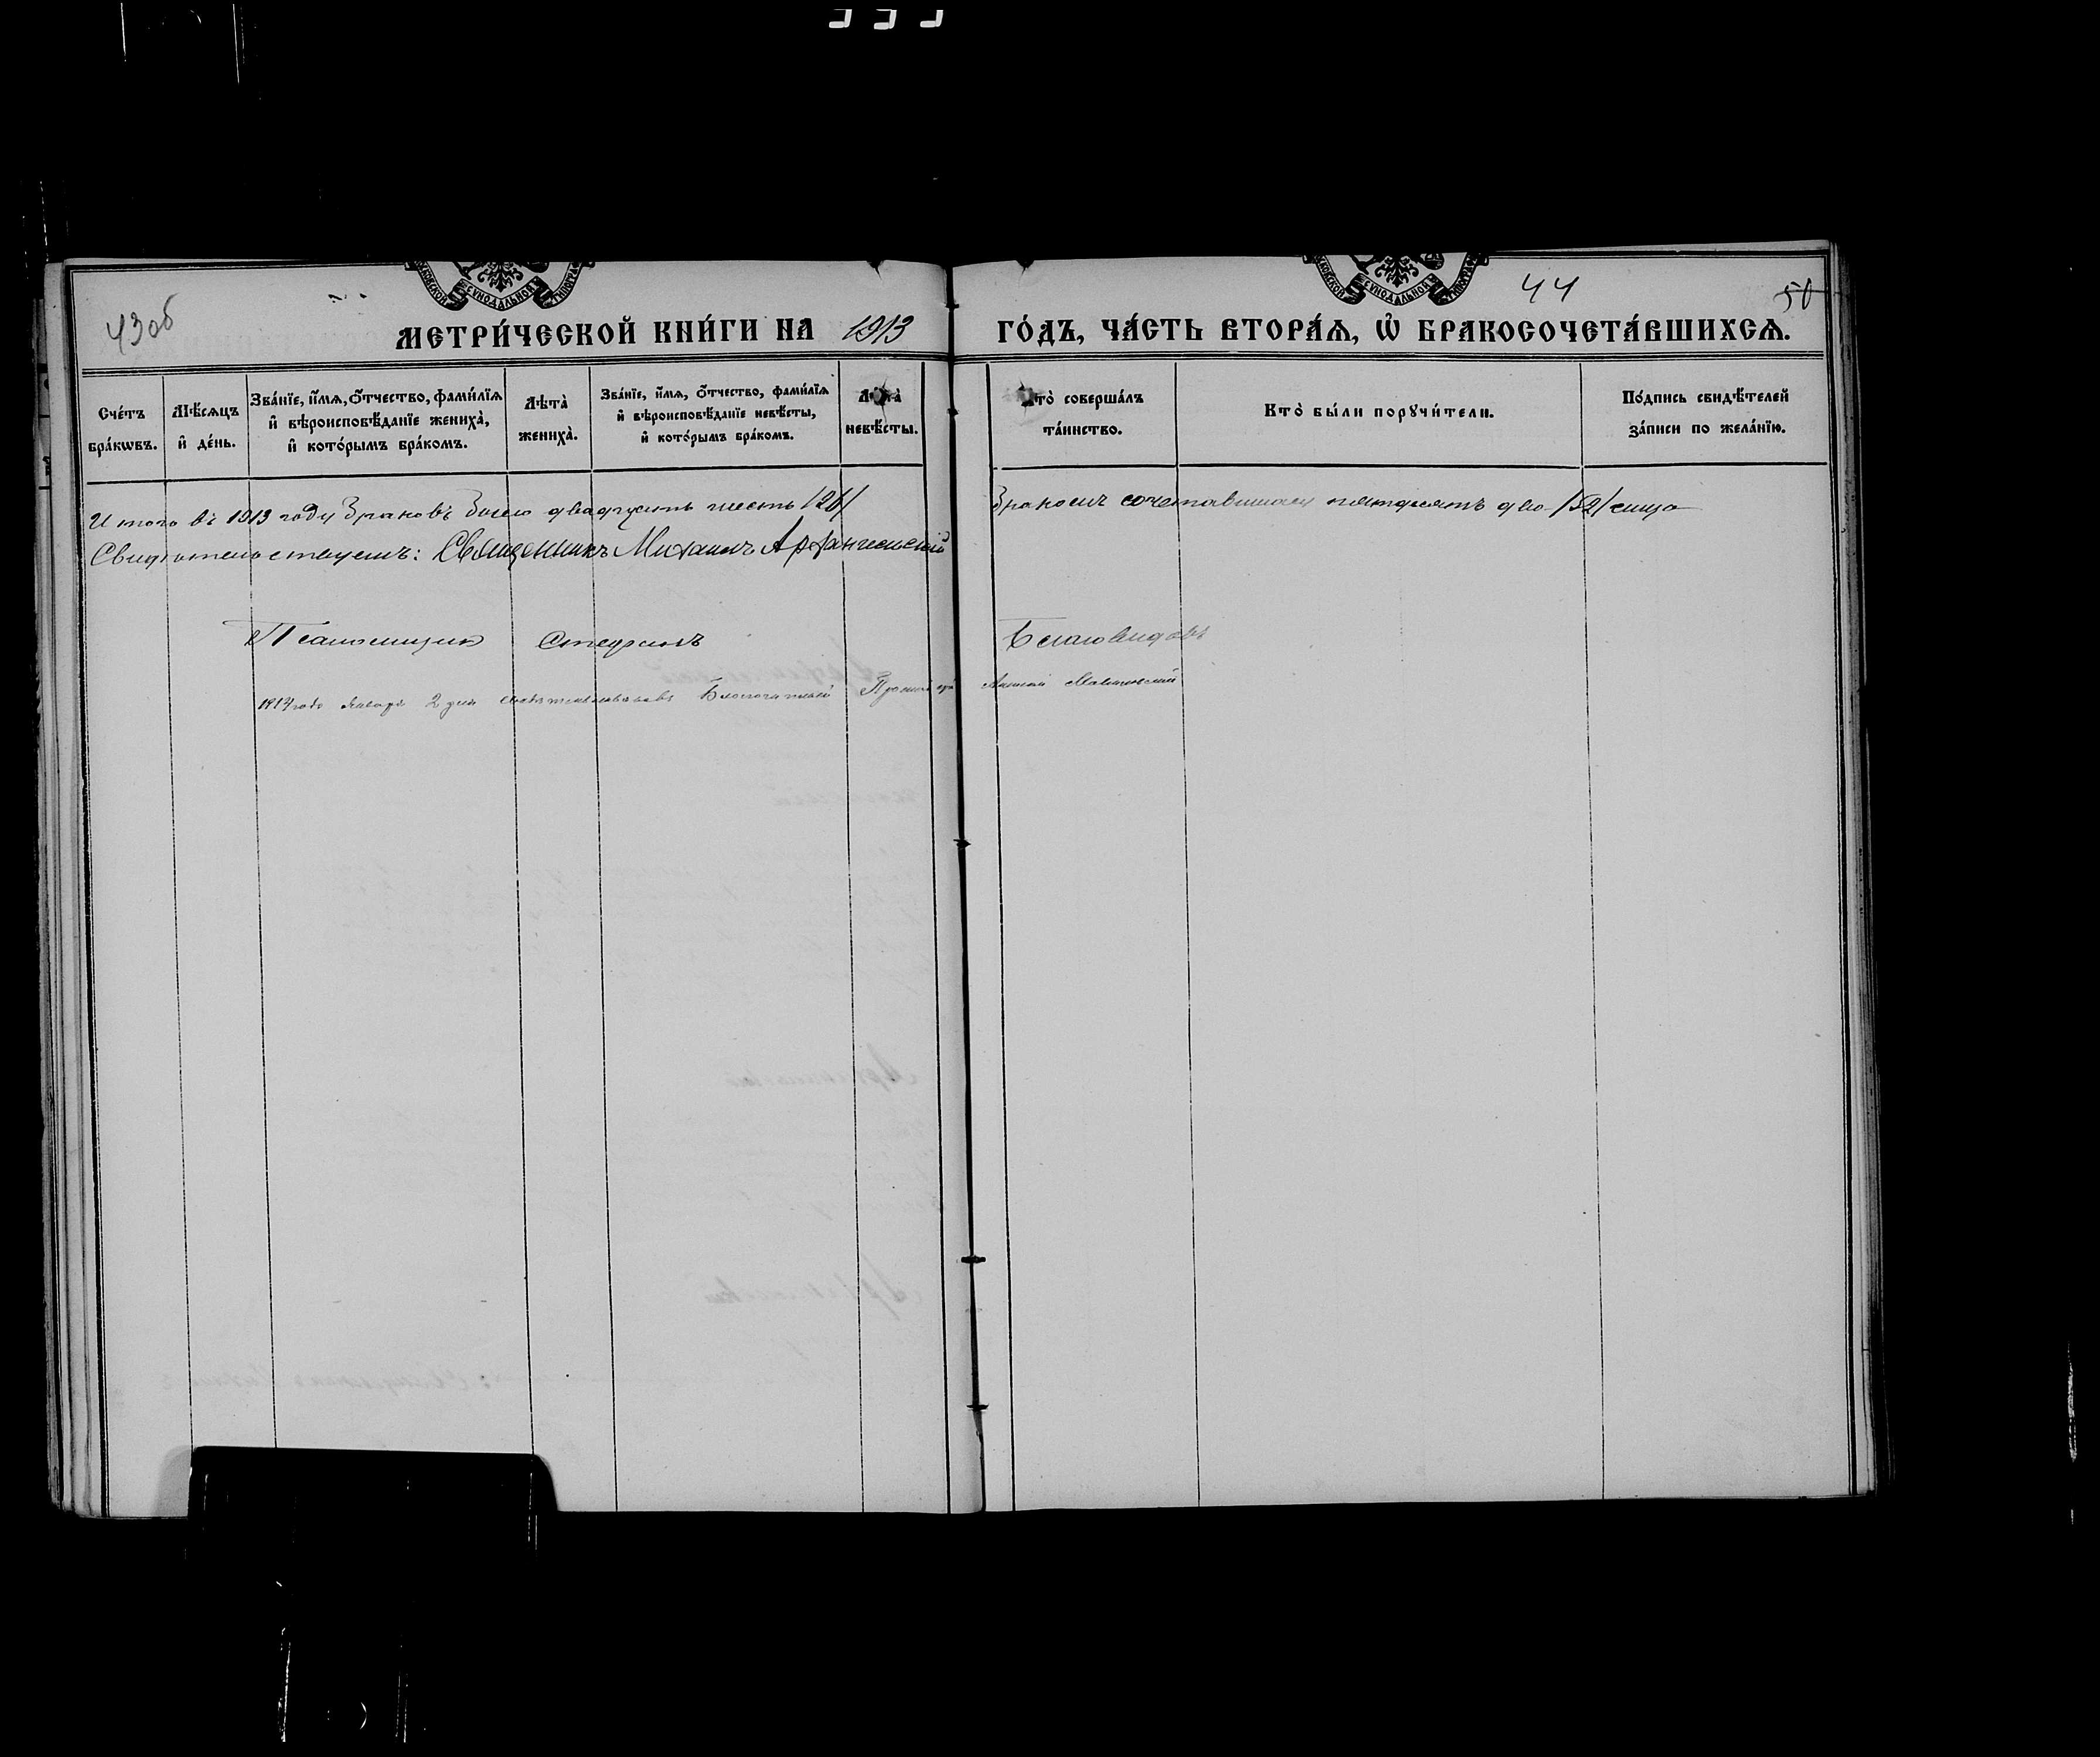 43об
44
50
МЕТРИ́ЧЕСКОЙ КНИ́ГИ НА 1913 ГО́ДЪ, ЧА́СТЬ ВТОРА́Ѧ, Ѽ БРАКОСОЧЕТА́ВШИХСѦ.
Сче́тъ бра́кѡвъ.
Мѣ́сѧцъ и҆ де́нь.
Зва́нїе, и҆́мѧ, ѻ҆́тчество, фами́лїѧ и҆ вѣроисповѣ́данїе жениха̀, и҆ кото́рымъ бра́комъ.
Лѣта̀ жениха̀.
Зва́нїе, и҆́мѧ, ѻ҆́тчество, фами́лїѧ и҆ вѣроисповѣ́данїе невѣ́сты, и҆ кото́рымъ бра́комъ.
Лѣта̀ невѣ́сты.
Кто̀ соверша́лъ та́инство.
Кто̀ бы́ли порꙋчи́тели.
По́дпись свидѣ́телей за́писи по жела́нїю.
Итого въ 1913 году браковъ было двадцать шесть /26/ бракомъ сочетавшихся пятьдесятъ два /52/ лица
Свидѣтельствуемъ: Священникъ Михаилъ Архангельскій
Псаломщикъ Стефанъ Бѣловидовъ
1914 года Января 2 дня свидѣтельствовалъ Благочинный